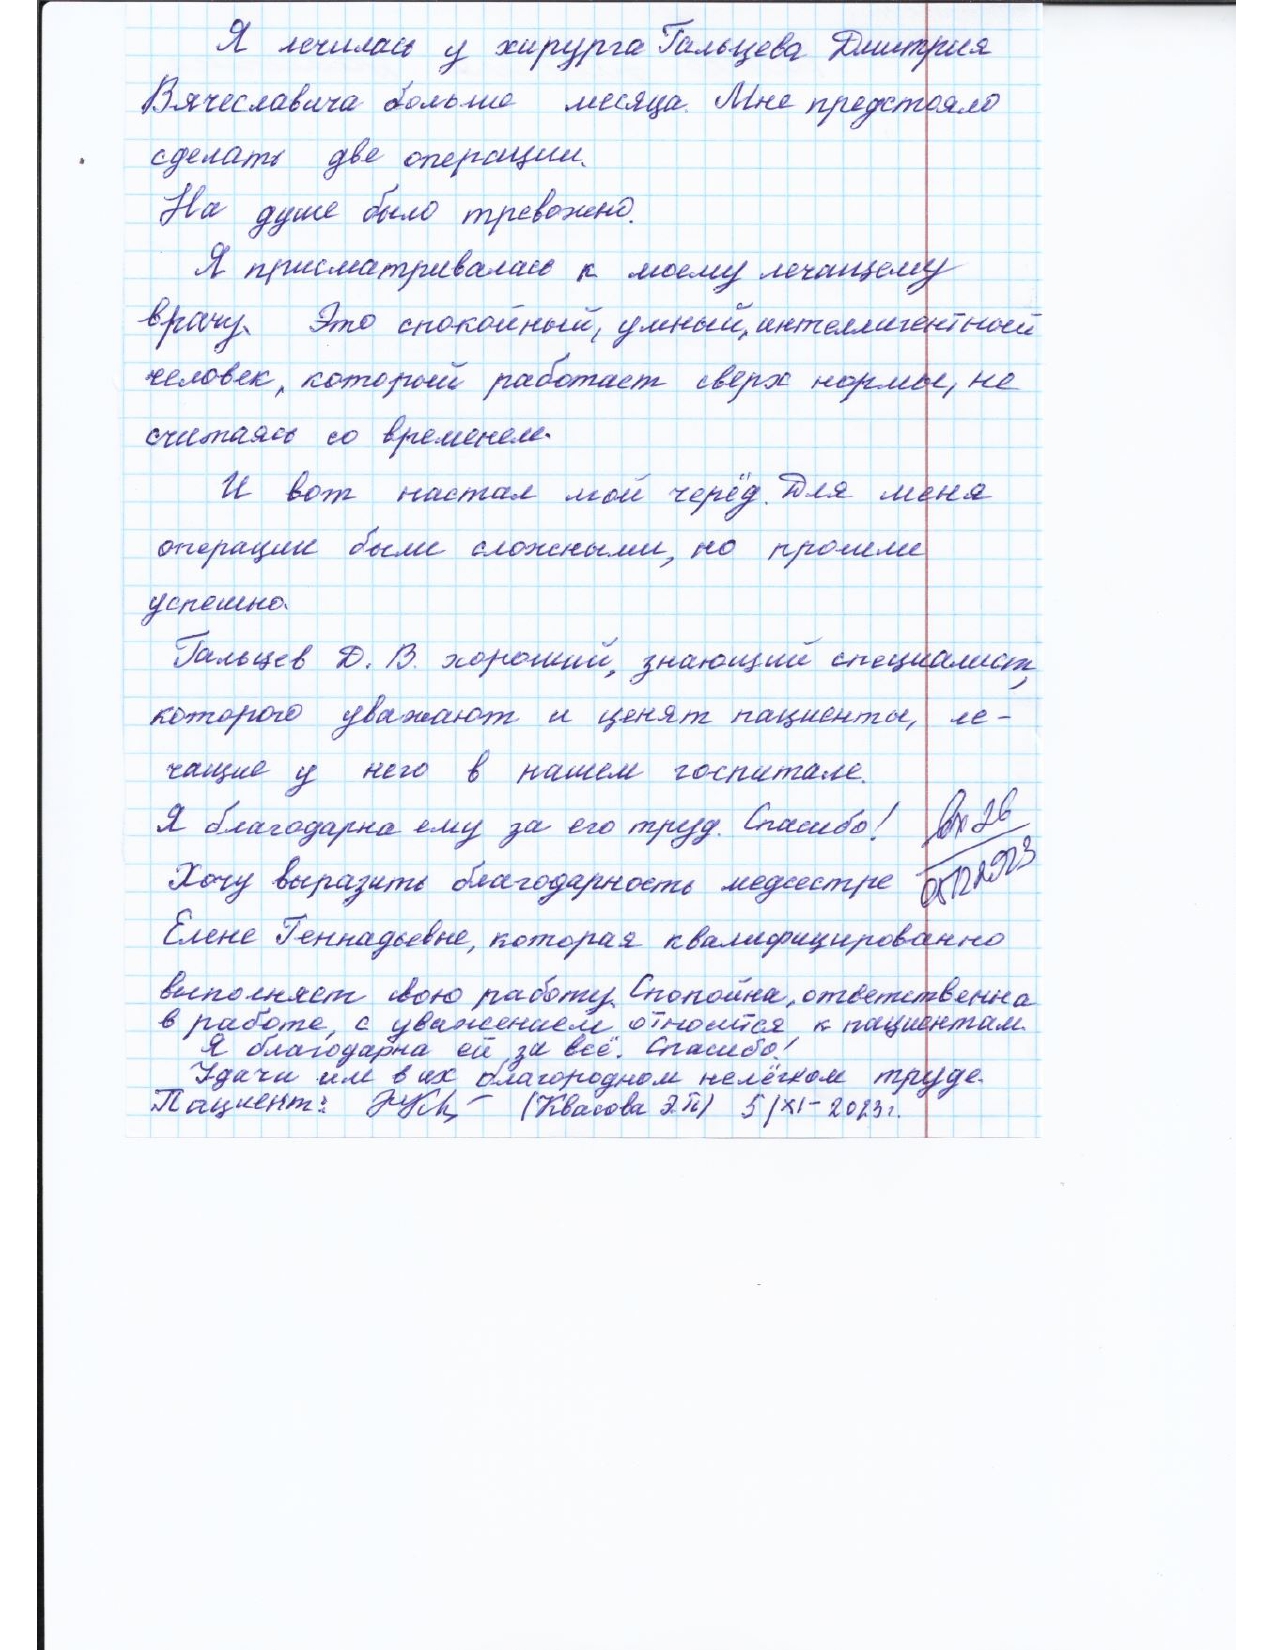 Я лечилась у хирурга Гальцева Дмитрия
Вячеславича больше месяца. Мне предстояло
сделать две операции.
На душе было тревожно.
Я присматривалась к моему лечащему
врачу. Это спокойный, умный, интеллигентный
человек, который работает сверх нормы, не
считаясь со временем.
И вот настал мой черёд. Для меня
операции были сложными, но прошли
успешно.
Гальцев Д. В. хороший, знающий специалист,
которого уважают и ценят пациенты, ле-
чащие у него в нашем госпитале.
Я благодарна ему за его труд. Спасибо!
Вх 26
05122023
Хочу выразить благодарность медсестре
Елене Геннадьевне, которая квалифицированно
выполняет свою работу. Спокойна, ответственна
в работе, с уважением относится к пациентам.
Я благодарна ей за всё. Спасибо!
Удачи им в их благородном нелёгком труде.
Пациент: (Квасова Э.П) 5/XI-2023г.